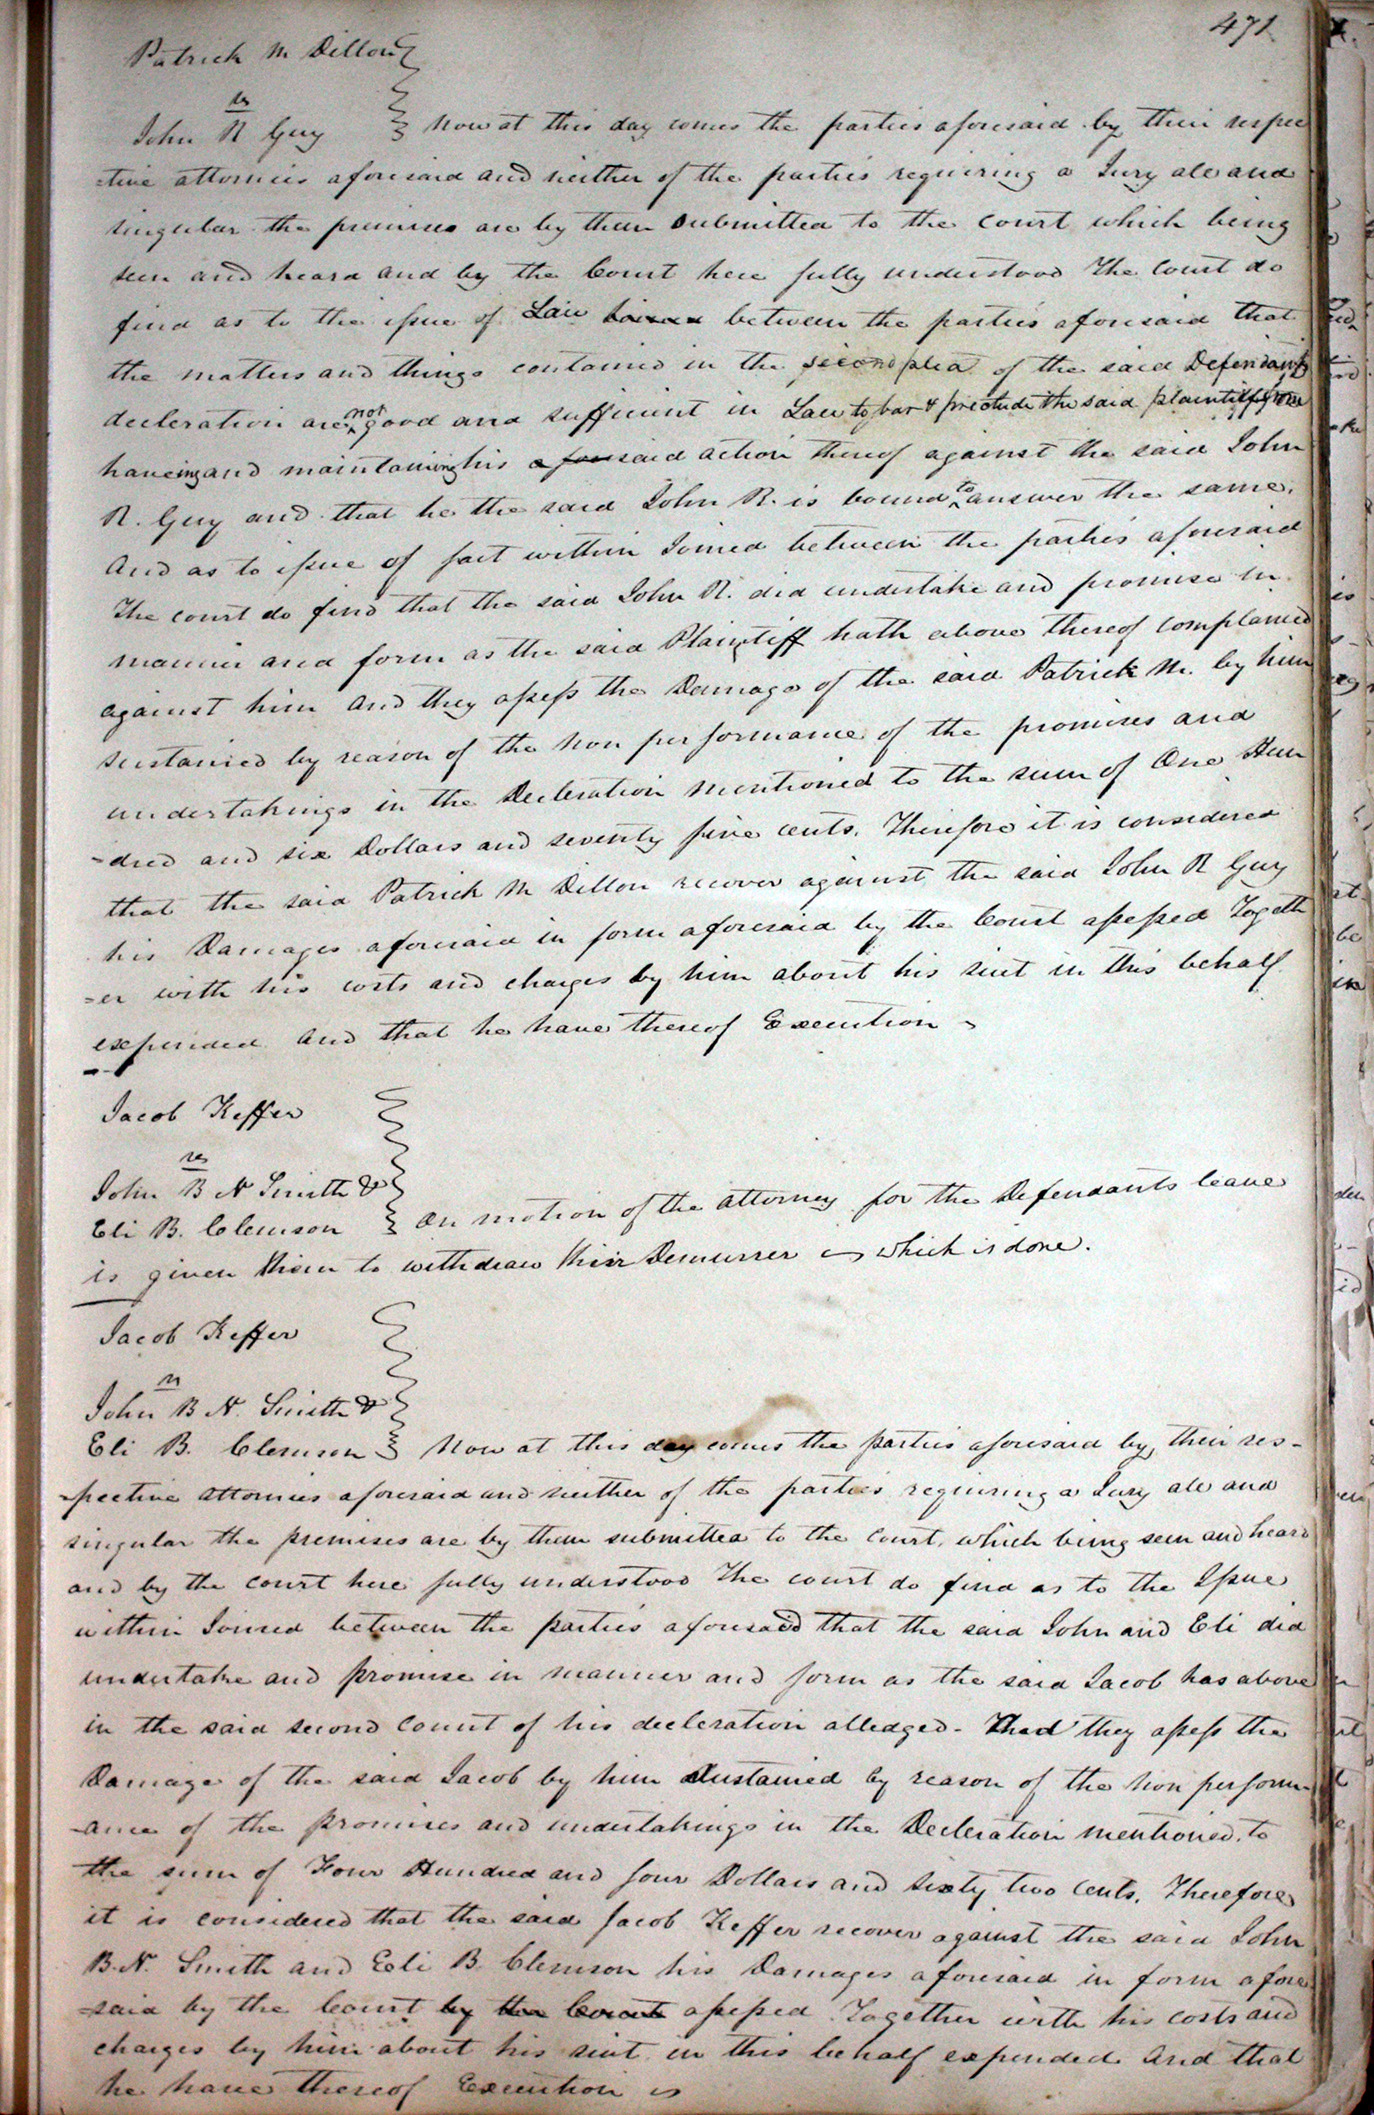 471
Patrick M Dillon
vs
John R Guy } Now at this day comes the parties aforesaid by their respec
-tive attornies aforesaid and neither of the parties requiring a Jury all and
singular the premises are by them submitted to the Court which being
seen and heard and by the Court here fully understood The Court do
find as to the issue of Law between the parties aforesaid that
the matters and things contained in the second plea of the said Defendants
decleration are not good and sufficient in Law to bar & preclude the said plaintiff from
haveing and maintaining his aforesaid action thereof against the said John
R. Guy and that he the said John R. is bound to answer the same.
And as to issue of fact within Joined between the parties aforesaid
The court do find that the said John R. did undertake and promise in
manner and form as the said Plaintiff hath above thereof complained
against him and they assess the Damage of the said Patrick M. by him
sustained by reason of the non performance of the promises and
undertakings in the Decleration mentioned to the sum of One Hun
-dred and six Dollars and seventy five cents. Therefore it is considered
that the said Patrick M Dillon recover against the said John R Guy
his Damages aforesaid in form aforesaid by the Court assessed Togeth
-er with his costs and charges by him about his suit in this behalf
expended and that he have thereof Execution
Jacob Keffer
vs
John B N Smith &
Eli B. Clemson } On motion of the attorney for the Defendants leave
is given them to withdraw their Demurrer which is done.
Jacob Keffer
vs
John B N. Smith &
Eli B. Clemson } Now at this day comes the parties aforesaid by their res-
-pective attornies aforesaid and neither of the parties requiring a Jury all and
singular the premises are by them submitted to the Court, which being seen and heard
and by the court here fully understood The court do find as to the Issue
within Joined between the parties aforesaid that the said John and Eli did
undertake and promise in manner and form as the said Jacob has above
in the said second Count of his decleration alledged- And they assess the
Damage of the said Jacob by him Sustained by reason of the non perform-
-ance of the promises and undertakings in the Decleration mentioned, to
the sum of Four Hundred and four Dollars and sixty two Cents. Therefore
it is considered that the said Jacob Keffer recover against the said John
B.N. Smith and Eli B Clemson his Damages aforesaid in form afore
-said by the Court by the Court assessed Together with his costs and
charges by him about his suit in this behalf expended And that
he have thereof Execution